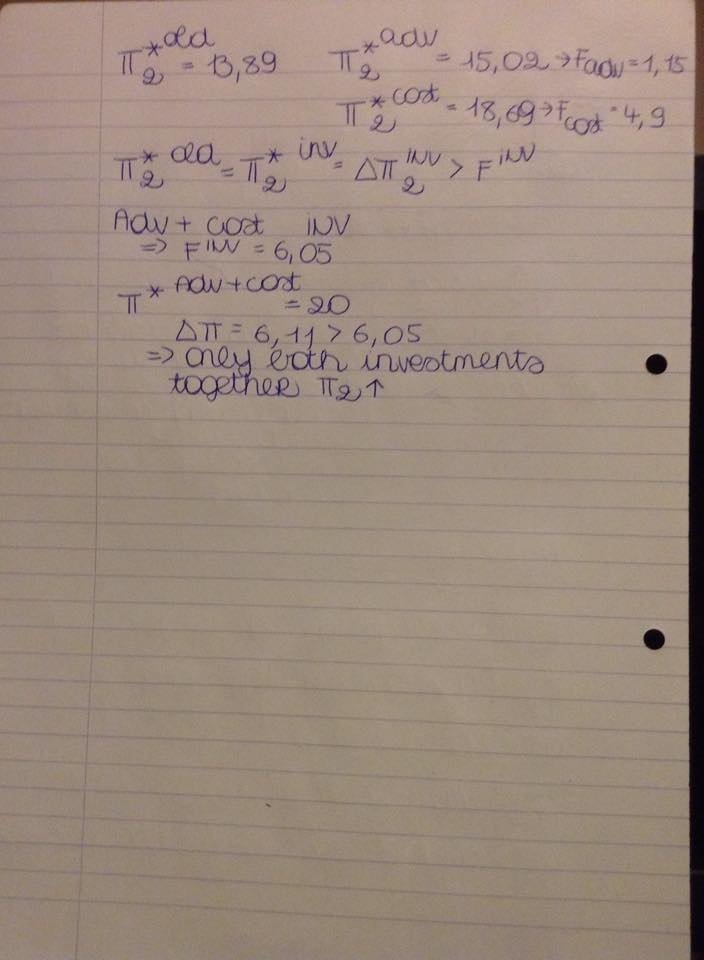 π₂*ᵒˡᵈ = 13,89 π₂*ᵃᵈᵛ = 15,02 → Fadv = 1,15
π₂*ᶜᵒˢᵗ = 18,69 → Fcost = 4,9
π₂*ᵒˡᵈ = π₂*ⁱⁿᵛ = Δπ₂ᴵᴺⱽ > Fᴵᴺⱽ
Adv + cost INV
⇒ Fᴵᴺⱽ = 6,05
π* Adv+cost = 20
Δπ = 6,11 > 6,05
⇒ only both investments
together π₂↑